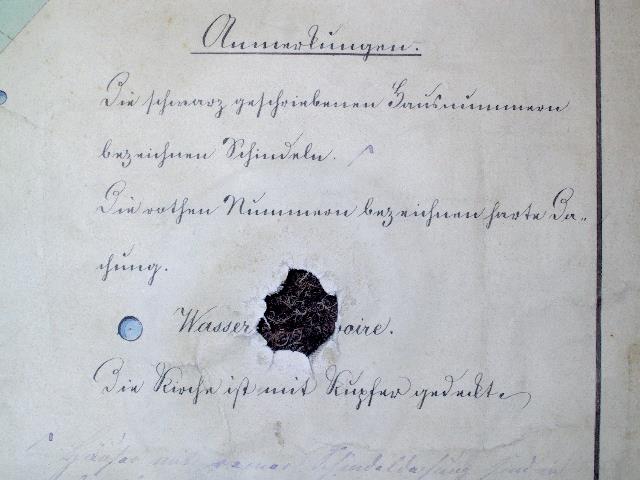 Anmerkungen.
Die schwarz geschriebenen Hausnummern
bezeichnen Schindeln.
Die rothen Nummern bezeichnen harte Da-
chung.
Wasser voire.
Die Kirche ist mit Kupfer gedeckt.
Häuser mit Schindeldachung sind